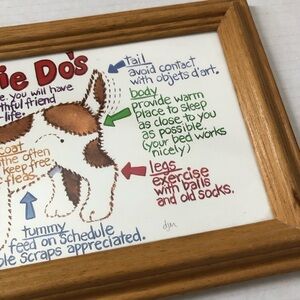 ie Do's
e you will have
thful friend
life.
tail
avoid contact
with objets d'art.
body
provide warm
place to sleep
as close to you
as possible.
(your bed works
nicely)
coat
the often
keep free
fleas.
legs
exercise
with balls
and old socks.
tummy
feed on schedule
ble scraps appreciated.